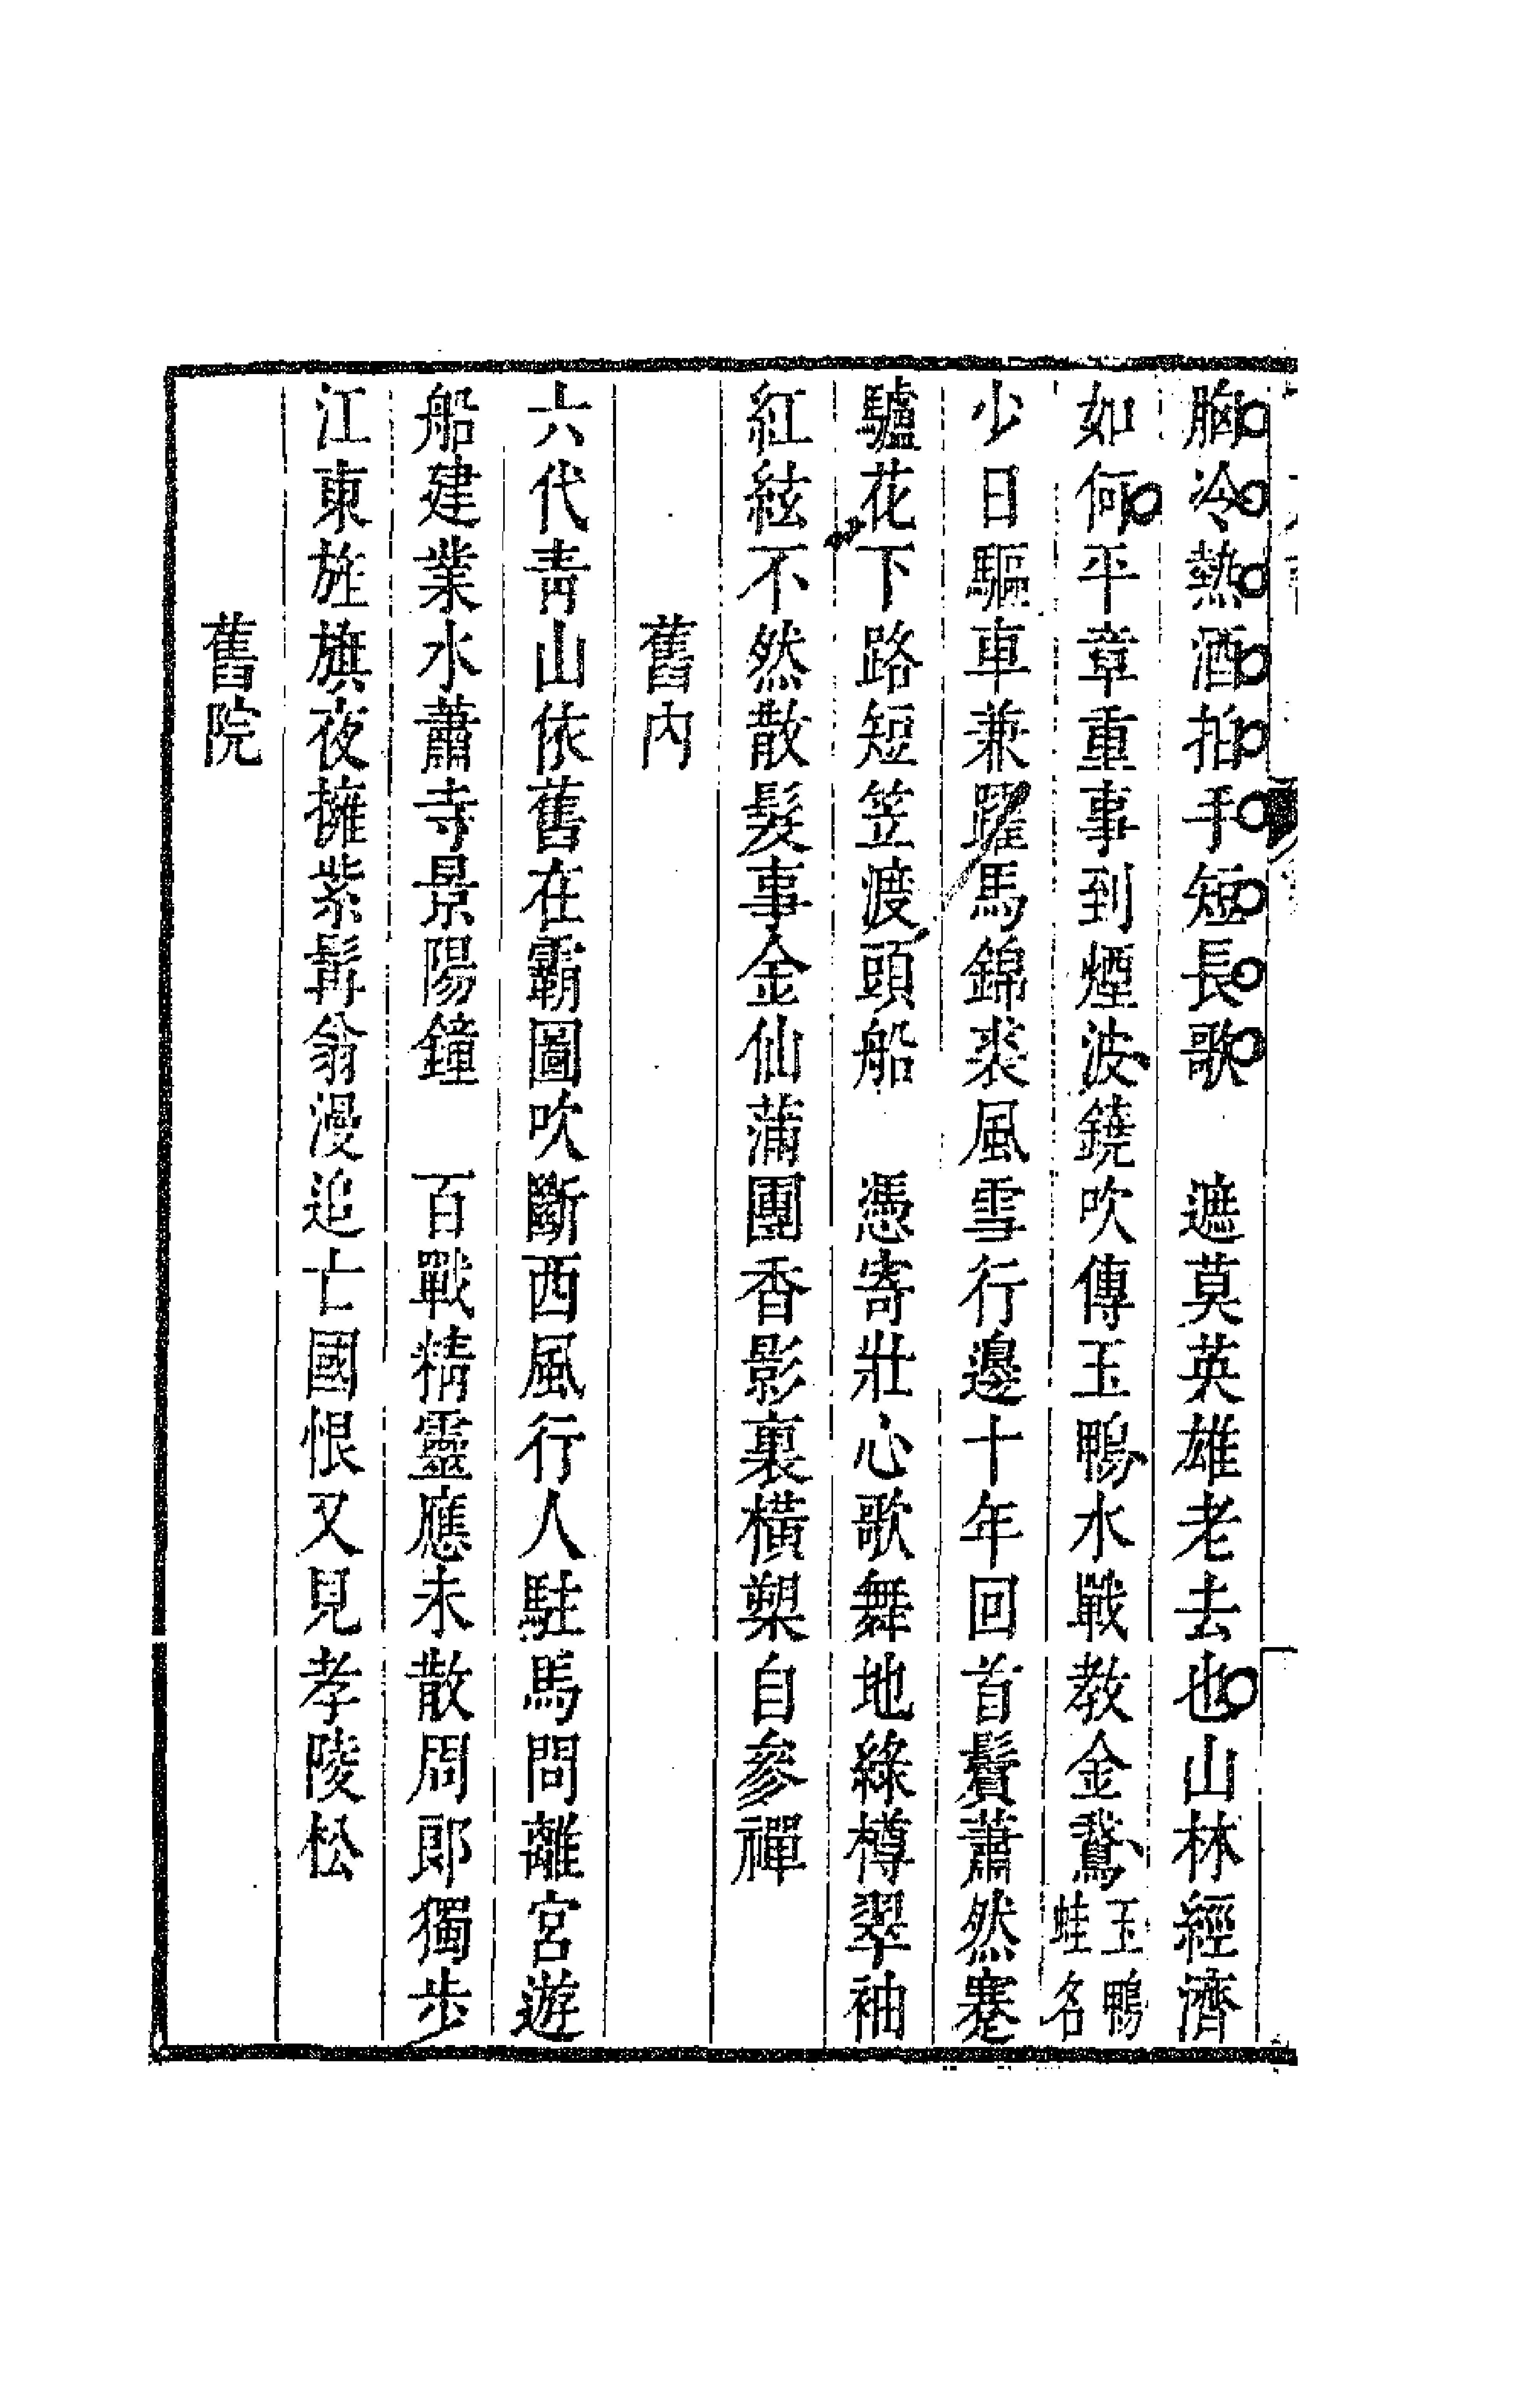 胸冷熱酒拍手短長歌　遮莫英雄老去也山林經濟
如何平章重事到煙波鐃吹傳玉鴨水戰教金鵞玉鴨蛙名
少日驅車兼躍馬錦裘風雪行邊十年回首鬢蕭然蹇
驢花下路短笠渡頭船　憑寄壯心歌舞地綠樽翠袖
紅絃不然散髮事金仙蒲團香影裏橫槊自參禪
舊內
六代青山依舊在霸圖吹斷西風行人駐馬問離宮遊
船建業水蕭寺景陽鐘　百戰精靈應未散周郞獨步
江東旌旗夜擁紫髯翁漫追亡國恨又見孝陵松
舊院